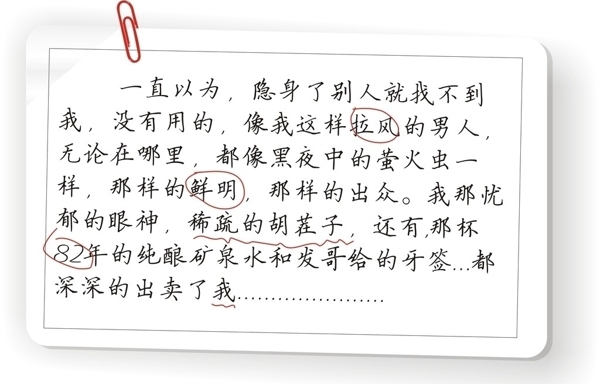 一直以为，隐身了别人就找不到
我，没有用的，像我这样拉风的男人，
无论在哪里，都像黑夜中的萤火虫一
样，那样的鲜明，那样的出众。我那忧
郁的眼神，稀疏的胡茬子，还有,那杯
82年的纯酿矿泉水和发哥给的牙签...都
深深的出卖了我......................